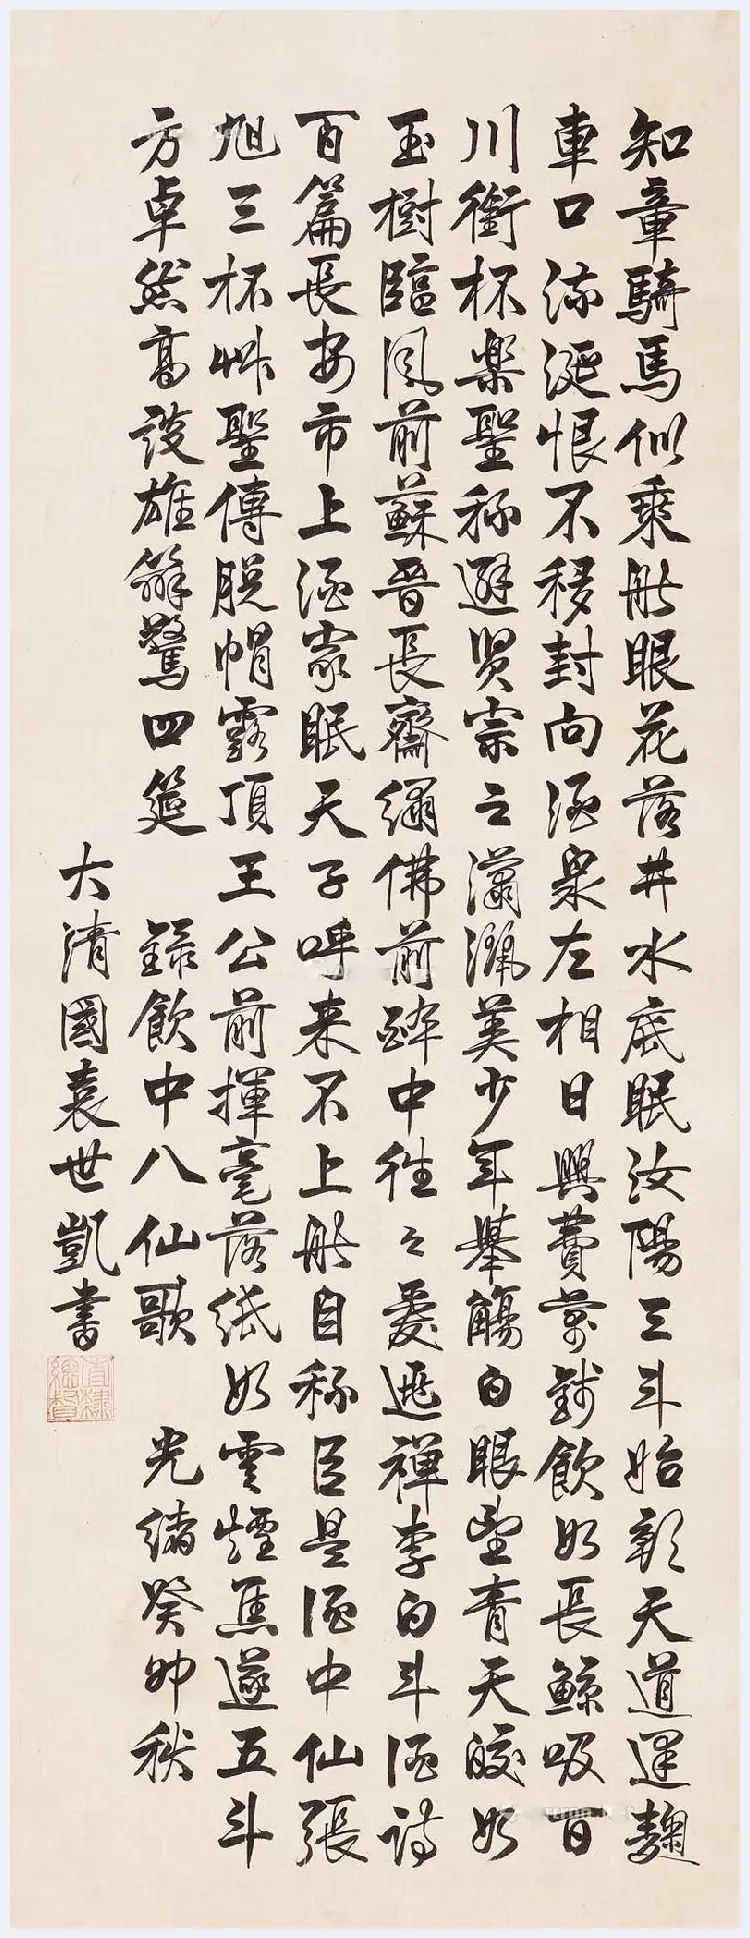 知章騎馬似乘船眼花落井水底眠汝陽三斗始朝天道逢麴
車口流涎恨不移封向酒泉左相日興費萬錢飲如長鯨吸百
川銜杯樂聖称避賢宗之瀟灑美少年舉觴白眼望青天皎如
玉樹臨風前蘇晉長齋繡佛前醉中往々愛逃禪李白斗酒詩
百篇長安市上酒家眠天子呼来不上船自称臣是酒中仙張
旭三杯艸聖傳脫帽露頂王公前揮毫落紙如雲煙焦遂五斗
方卓然高談雄辯驚四筵 錄飲中八仙歌 光緒癸卯秋
大清國袁世凱書
直隸總督